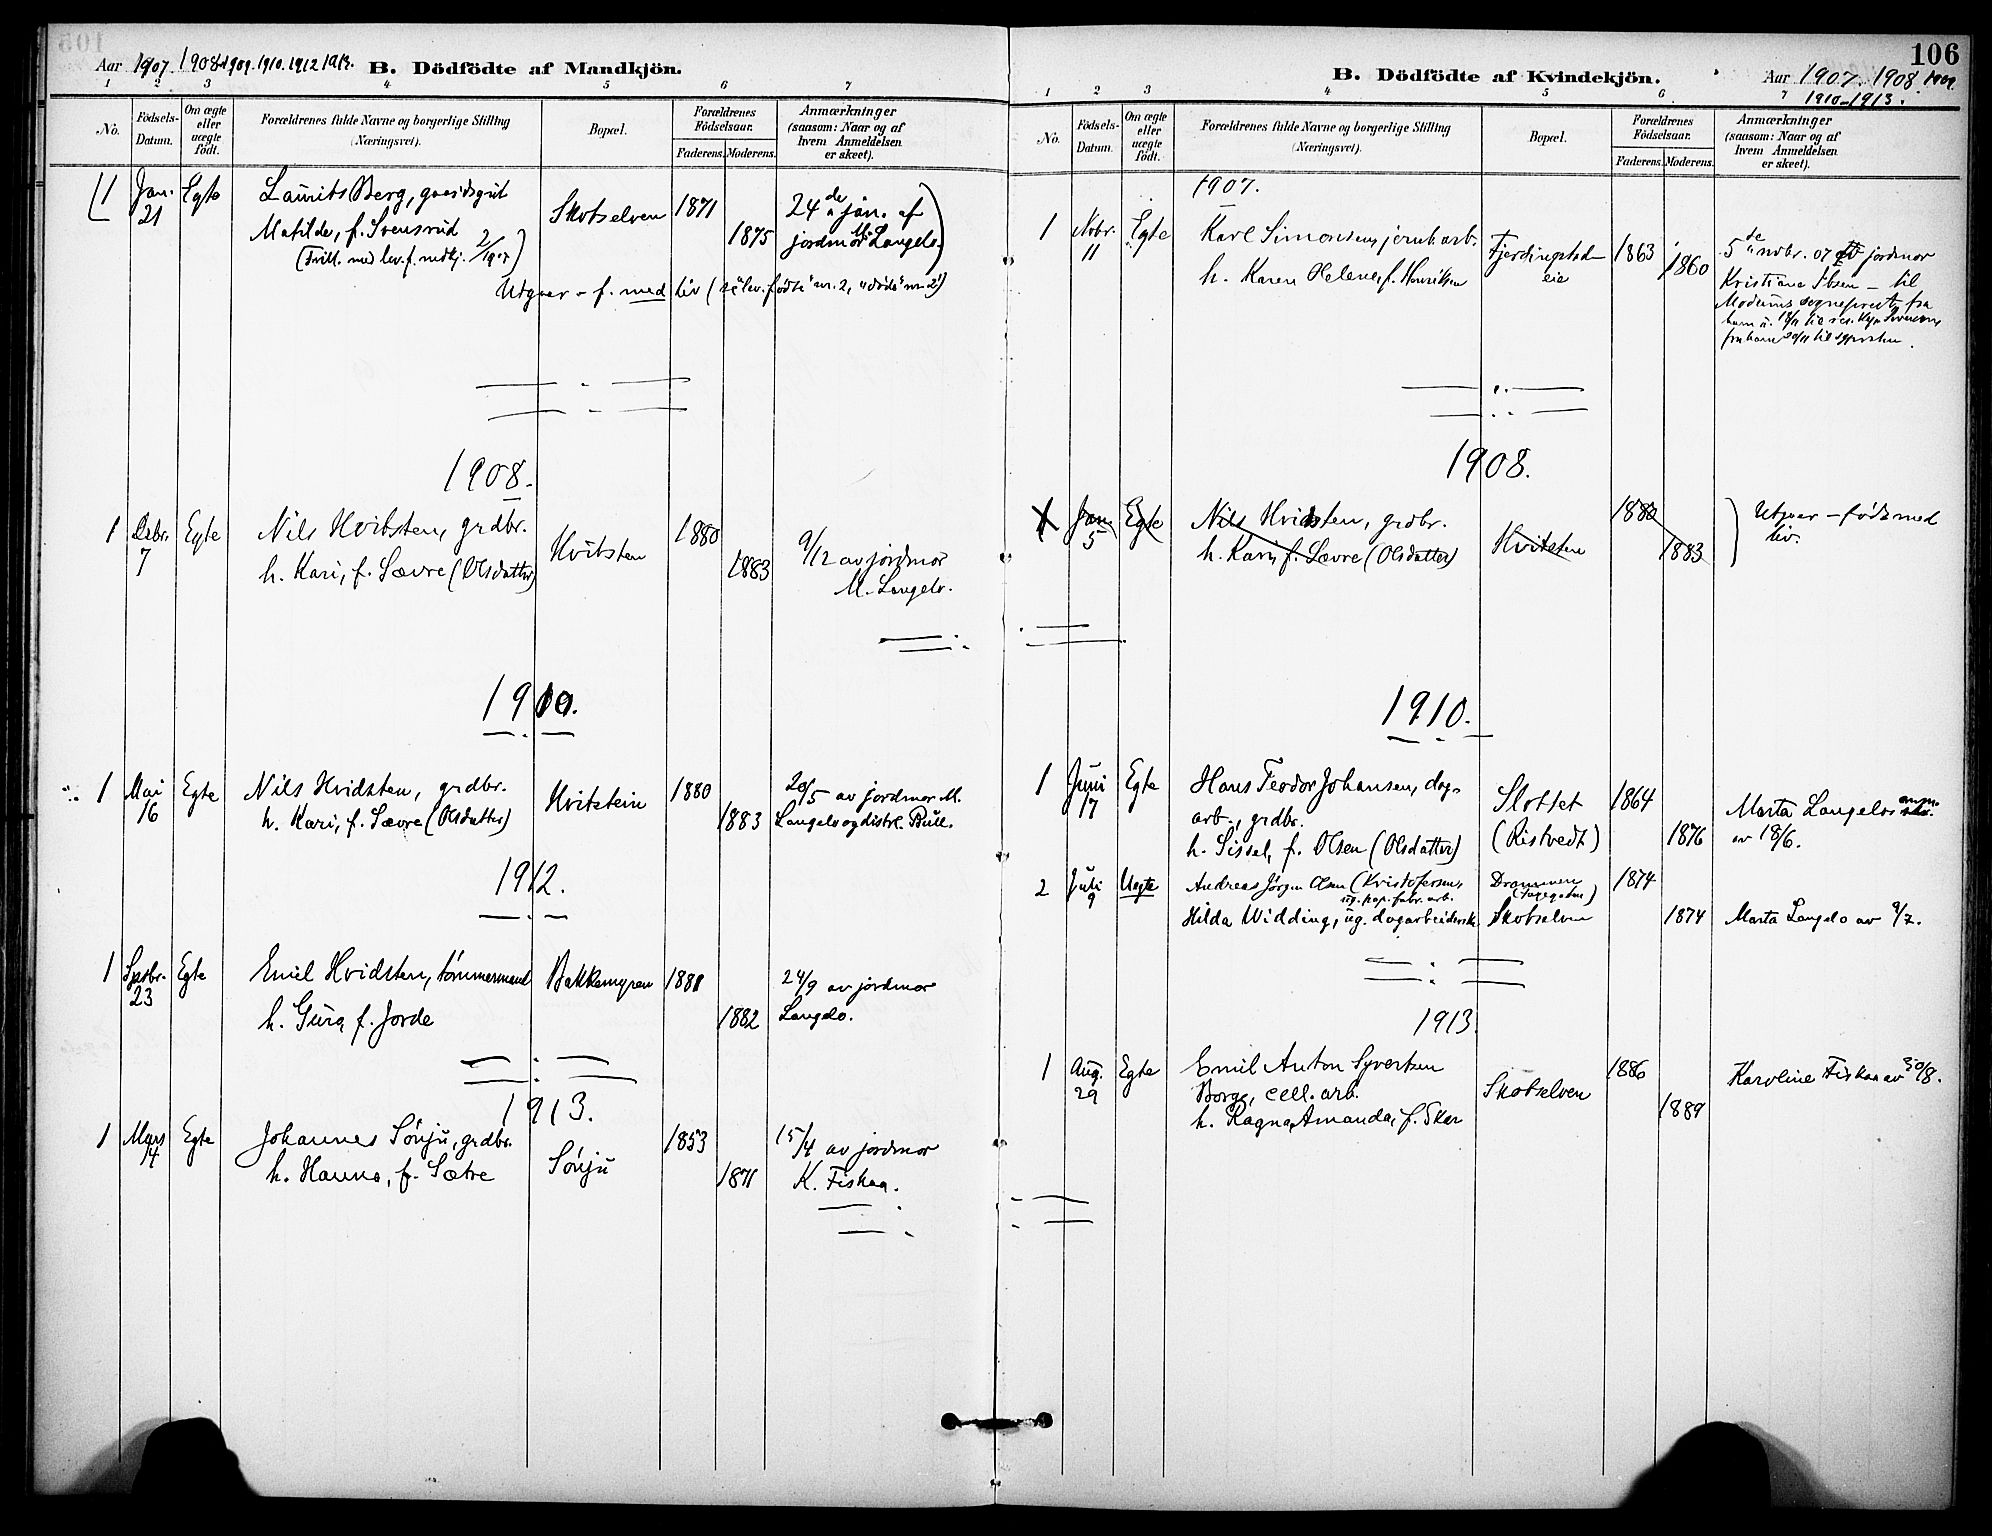 Aar 1907. 1908. 1909. 1910. 1912 1913. B. Dödfödte af Mandkjön.
1 2 3 4 5 6 7
No. Födsels-Datum. Om ægte eller uægte födt. Forældrenes fulde Navne og borgerlige Stilling (Næringsvei). Bopæl. Forældrenes Födselsaar. Faderens. Moderens. Anmærkninger (saasom: Naar og af hvem Anmeldelsen er skeet).
1 Jan. 21 Egte Laurits Berg, Skotselven 1871 24de jan. af
Matilde, f. Svensrud 1875 jordmor M. Langelo.
(Tvill. med lev. f. mdkj. 2/1907)
Utgaar – f. med liv (se lev. födte nr. 2, "döde" nr. 2)
1908.
1 Debr. 7 Egte Nils Hvitsten, grdbr. Hvitsten 1880 9/12 av jordmor
h. Kari, f. Sævre (Olsdatter) 1883 M. Langelo.
1910.
1 Mai 16 Egte Nils Hvidsten, grdbr. Hvitstein 1880 20/5 av jordmor M.
h. Kari, f. Sævre (Olsdatter) 1883 Langelo og distrl. Bull.
1912.
1 Septbr. 23 Egte Emil Hvidsten, tömmermand Bakkemyren 1881 24/9 av jordmor
h. Guro, f. Jorde 1882 Langelo.
1913.
1 Mars 14 Egte Johannes Sönju, grdbr. Sönju 1853 15/4 av jordmor
h. Hanna, f. Sætre 1871 K. Fiskaa.
106
B. Dödfödte af Kvindekjön. Aar 1907. 1908. 1909.
1910–1913.
1 2 3 4 5 6 7
No. Födsels-Datum. Om ægte eller uægte födt. Forældrenes fulde Navne og borgerlige Stilling (Næringsvei). Bopæl. Forældrenes Födselsaar. Faderens. Moderens. Anmærkninger (saasom: Naar og af hvem Anmeldelsen er skeet).
1907.
1 Novbr. 11 Egte Karl Simonsen, jernb. arb. Fjerdingstad-eie 1863 5de novbr. 07 av jordmor
h. Karen Helene, f. Henriksen 1860 Kristiane Ibsen – til
Modums sogneprest, fra
ham 18/11 til res. kap.
fra ham 20/11 til sgprsten.
1908.
1 Jan. 5 Egte Nils Hvidsten, grdbr. Hvitsten 1880 Utgaar – född med
h. Kari, f. Sævre (Olsdatter) 1883 liv.
1910.
1 Juni 17 Egte Hans Teodor Johansen, dag- Slottet 1864 Marta Langelo anm.
arb., grdbr. (Ristvedt) 1876 av 18/6.
h. Sissel, f. Olsen (Olsdatter)
2 Juli 9 Uegte Andreas Jörgen Olsen (Kristofersen, Drammen 1874
ug. pap. fabr. arb.
Hilda Widding, ug. dagarbeiderske Skotselven 1874 Marta Langelo av 9/7.
1913.
1 Aug. 29 Egte Emil Anton Syvertsen 1886 Karoline Fiskaa av 30/8.
Borge, cell. arb. Skotselven
h. Ragna Amanda, f. Skar 1889